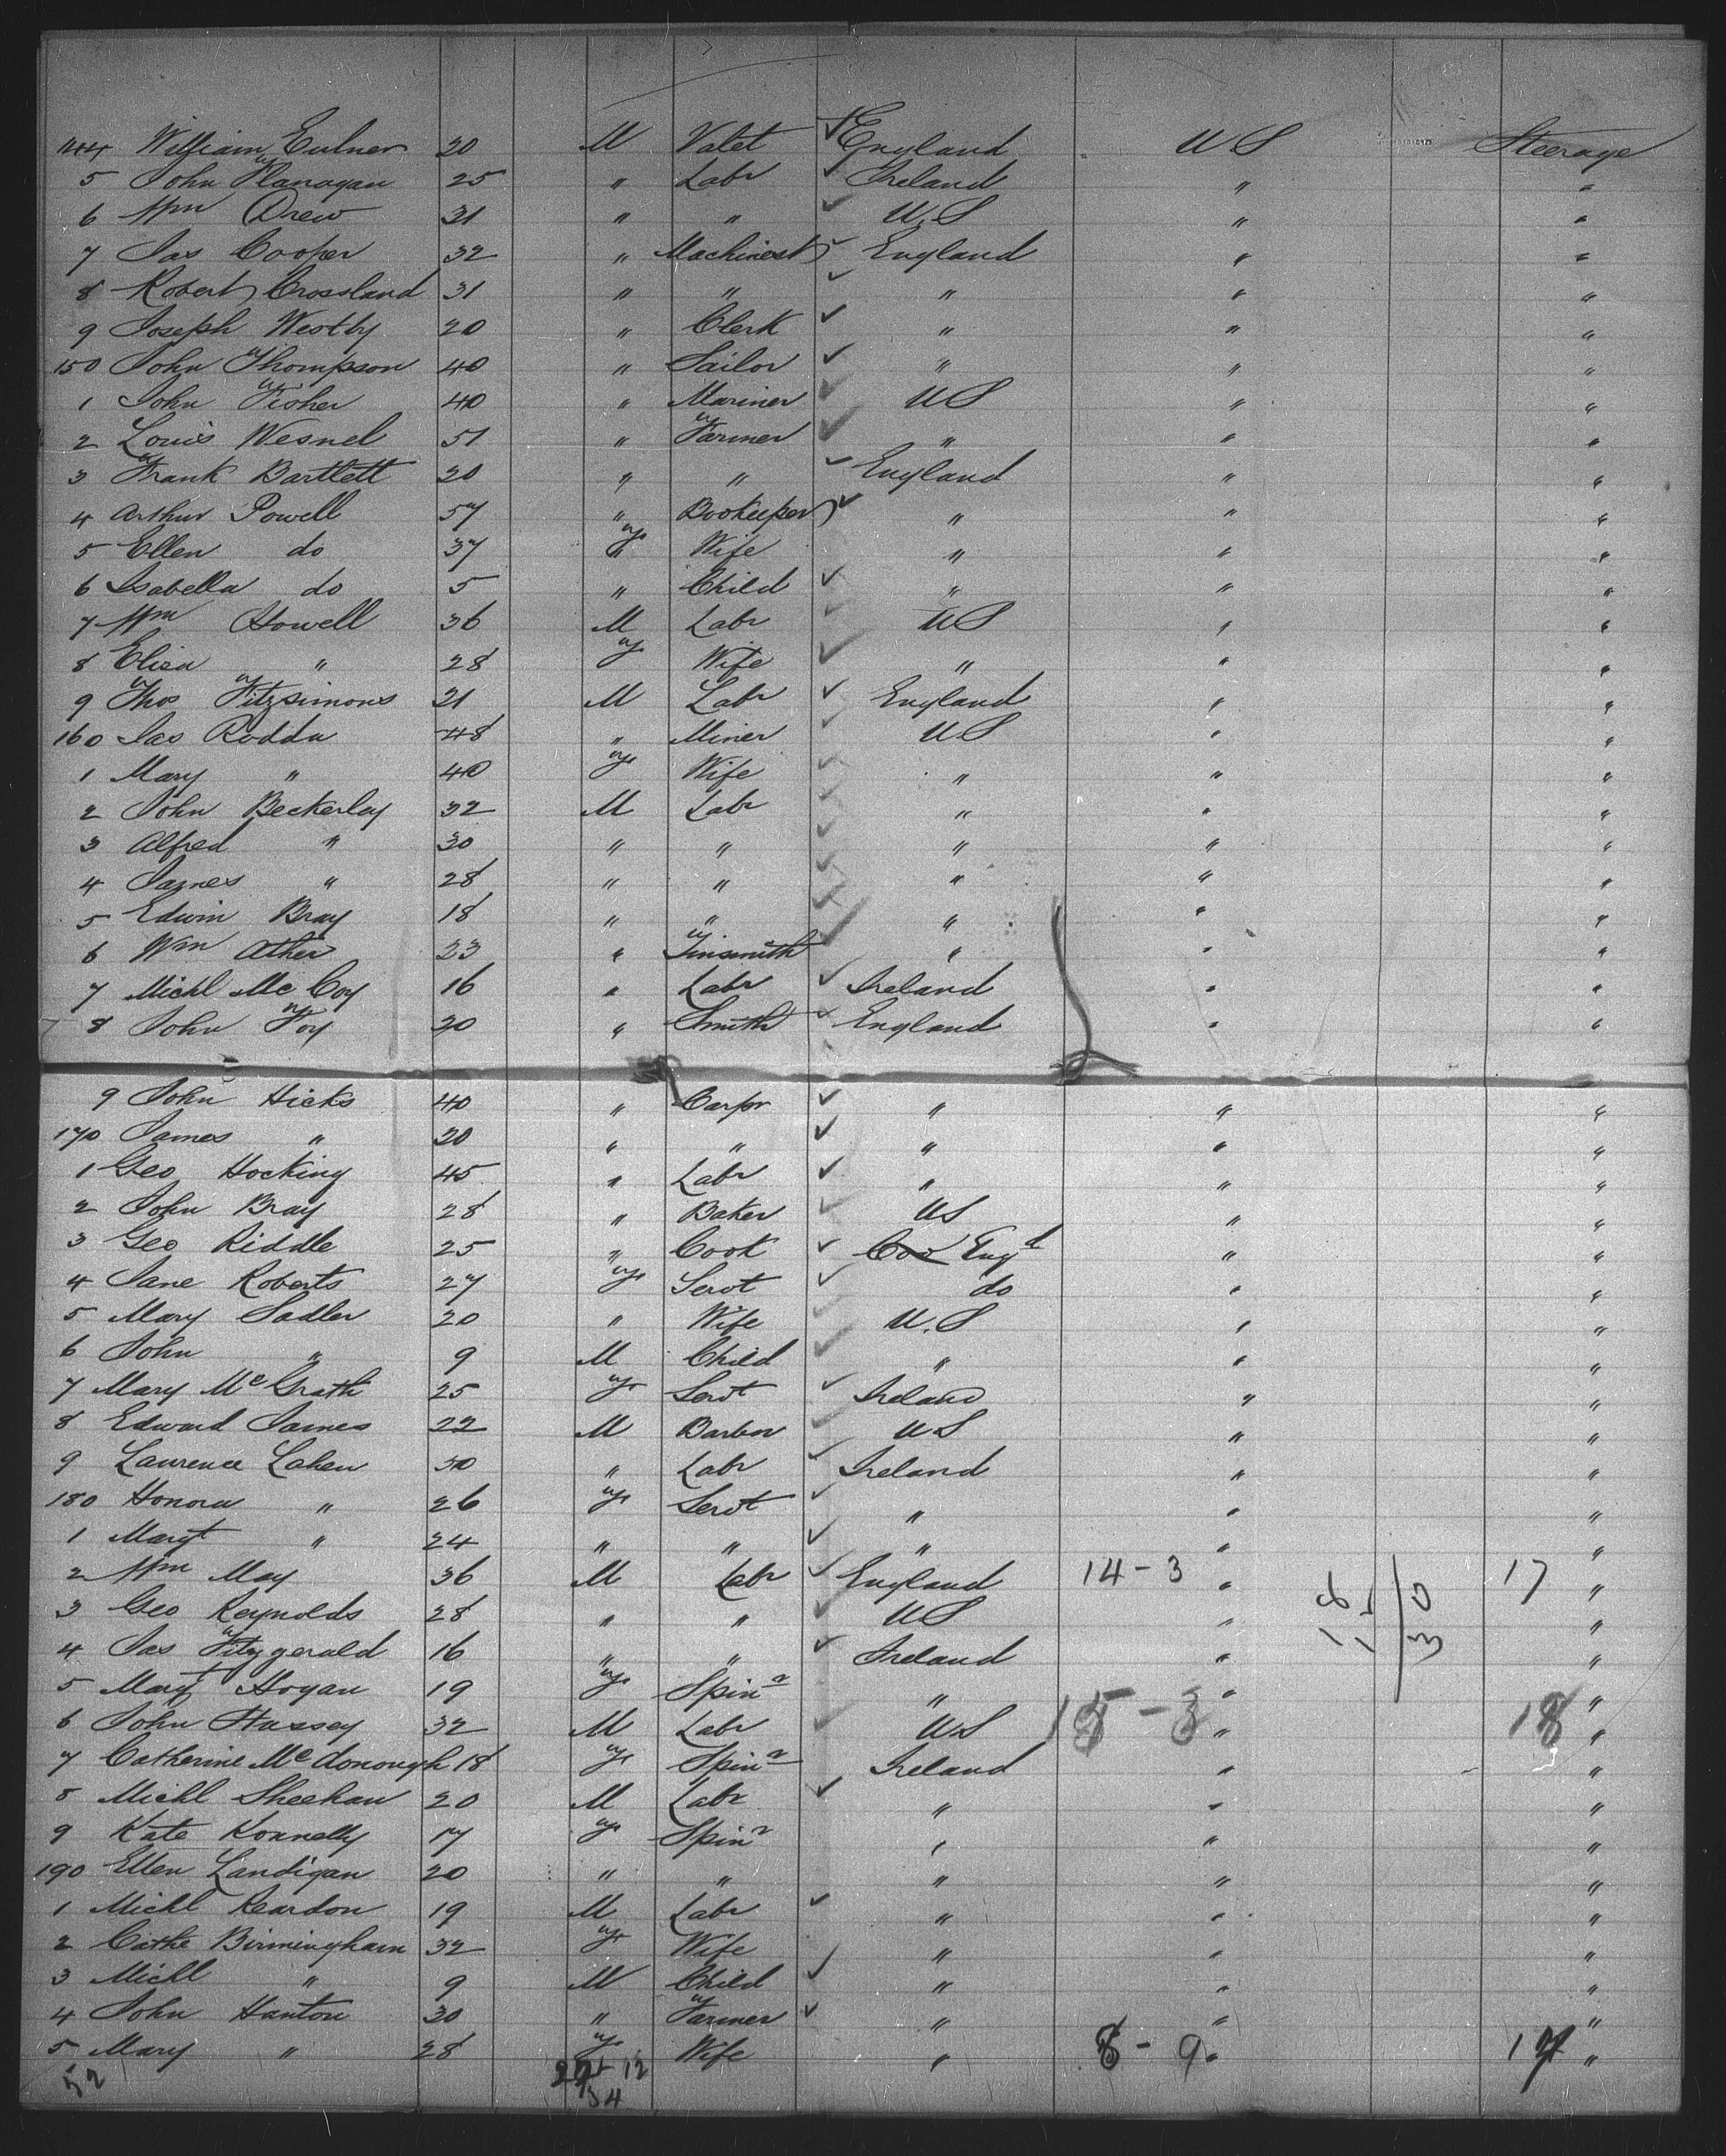 144 William Eulner 20 M Valet England U S Steerage
5 John Flanagan 25 " Labr Ireland " "
6 Wm Drew 31 " " U.S " "
7 Jas Cooper 32 " Machinest England " "
8 Robert Crossland 31 " " " " "
9 Joseph Westby 20 " Clerk " " "
150 John Thompson 40 " Sailor " " "
1 John Fisher 40 " Mariner U S " "
2 Louis Wesnel 51 " Farmer " " "
3 Frank Bartlett 20 " " England " "
4 Arthur Powell 57 " Bookeeper " " "
5 Ellen do 37 F Wife " " "
6 Isabella do 5 " Child " " "
7 Wm Howell 36 M Labr U S " "
8 Eliza " 28 F Wife " " "
9 Thos Fitzsimons 21 M Labr England " "
160 Jas Rodda 48 " Miner U.S " "
1 Mary " 40 F Wife " " "
2 John Beckerley 32 M Labr " " "
3 Alfred " 30 " " " " "
4 James " 28 " " " " "
5 Edwin Bray 18 " " " " "
6 Wm Ather 23 " Tinsmith " " "
7 Michl Mc Coy 16 " Labr Ireland " "
8 John Foy 20 " Smith England " "
9 John Hicks 40 " Carpr " " "
170 James " 20 " " " " "
1 Geo Hocking 45 " Labr " " "
2 John Bray 28 " Baker US " "
3 Geo Riddle 25 " Cook Coo Engd " "
4 Jane Roberts 27 F Servt do " "
5 Mary Sadler 20 " Wife U.S " "
6 John " 9 M Child " " "
7 Mary McGrath 25 F Servt Ireland " "
8 Edward James 22 M Barber U S " "
9 Laurence Lahen 30 " Labr Ireland " "
180 Honora " 26 F Servt " " "
1 Margt " 24 " " " " "
2 Wm May 36 M Labr England 14-3 " 17 "
3 Geo Reynolds 28 " " U S " "
4 Jas Fitzgerald 16 " " Ireland " "
5 Margt Hogan 19 F Spinr " " "
6 John Hassey 32 M Labr U S " "
7 Catherine McDonough 18 F Spinr Ireland " "
8 Michl Sheehan 20 M Labr " " "
9 Kate Konnelly 17 F Spinr " " "
190 Ellen Landigan 20 " " " " "
1 Michl Reardon 19 M Labr " " "
2 Cathe Birmingham 32 F Wife " " "
3 Michl " 9 M Child " " "
4 John Hanton 30 " Farmer " " "
5 Mary " 28 F Wife " 8-9 " "
52 12
34